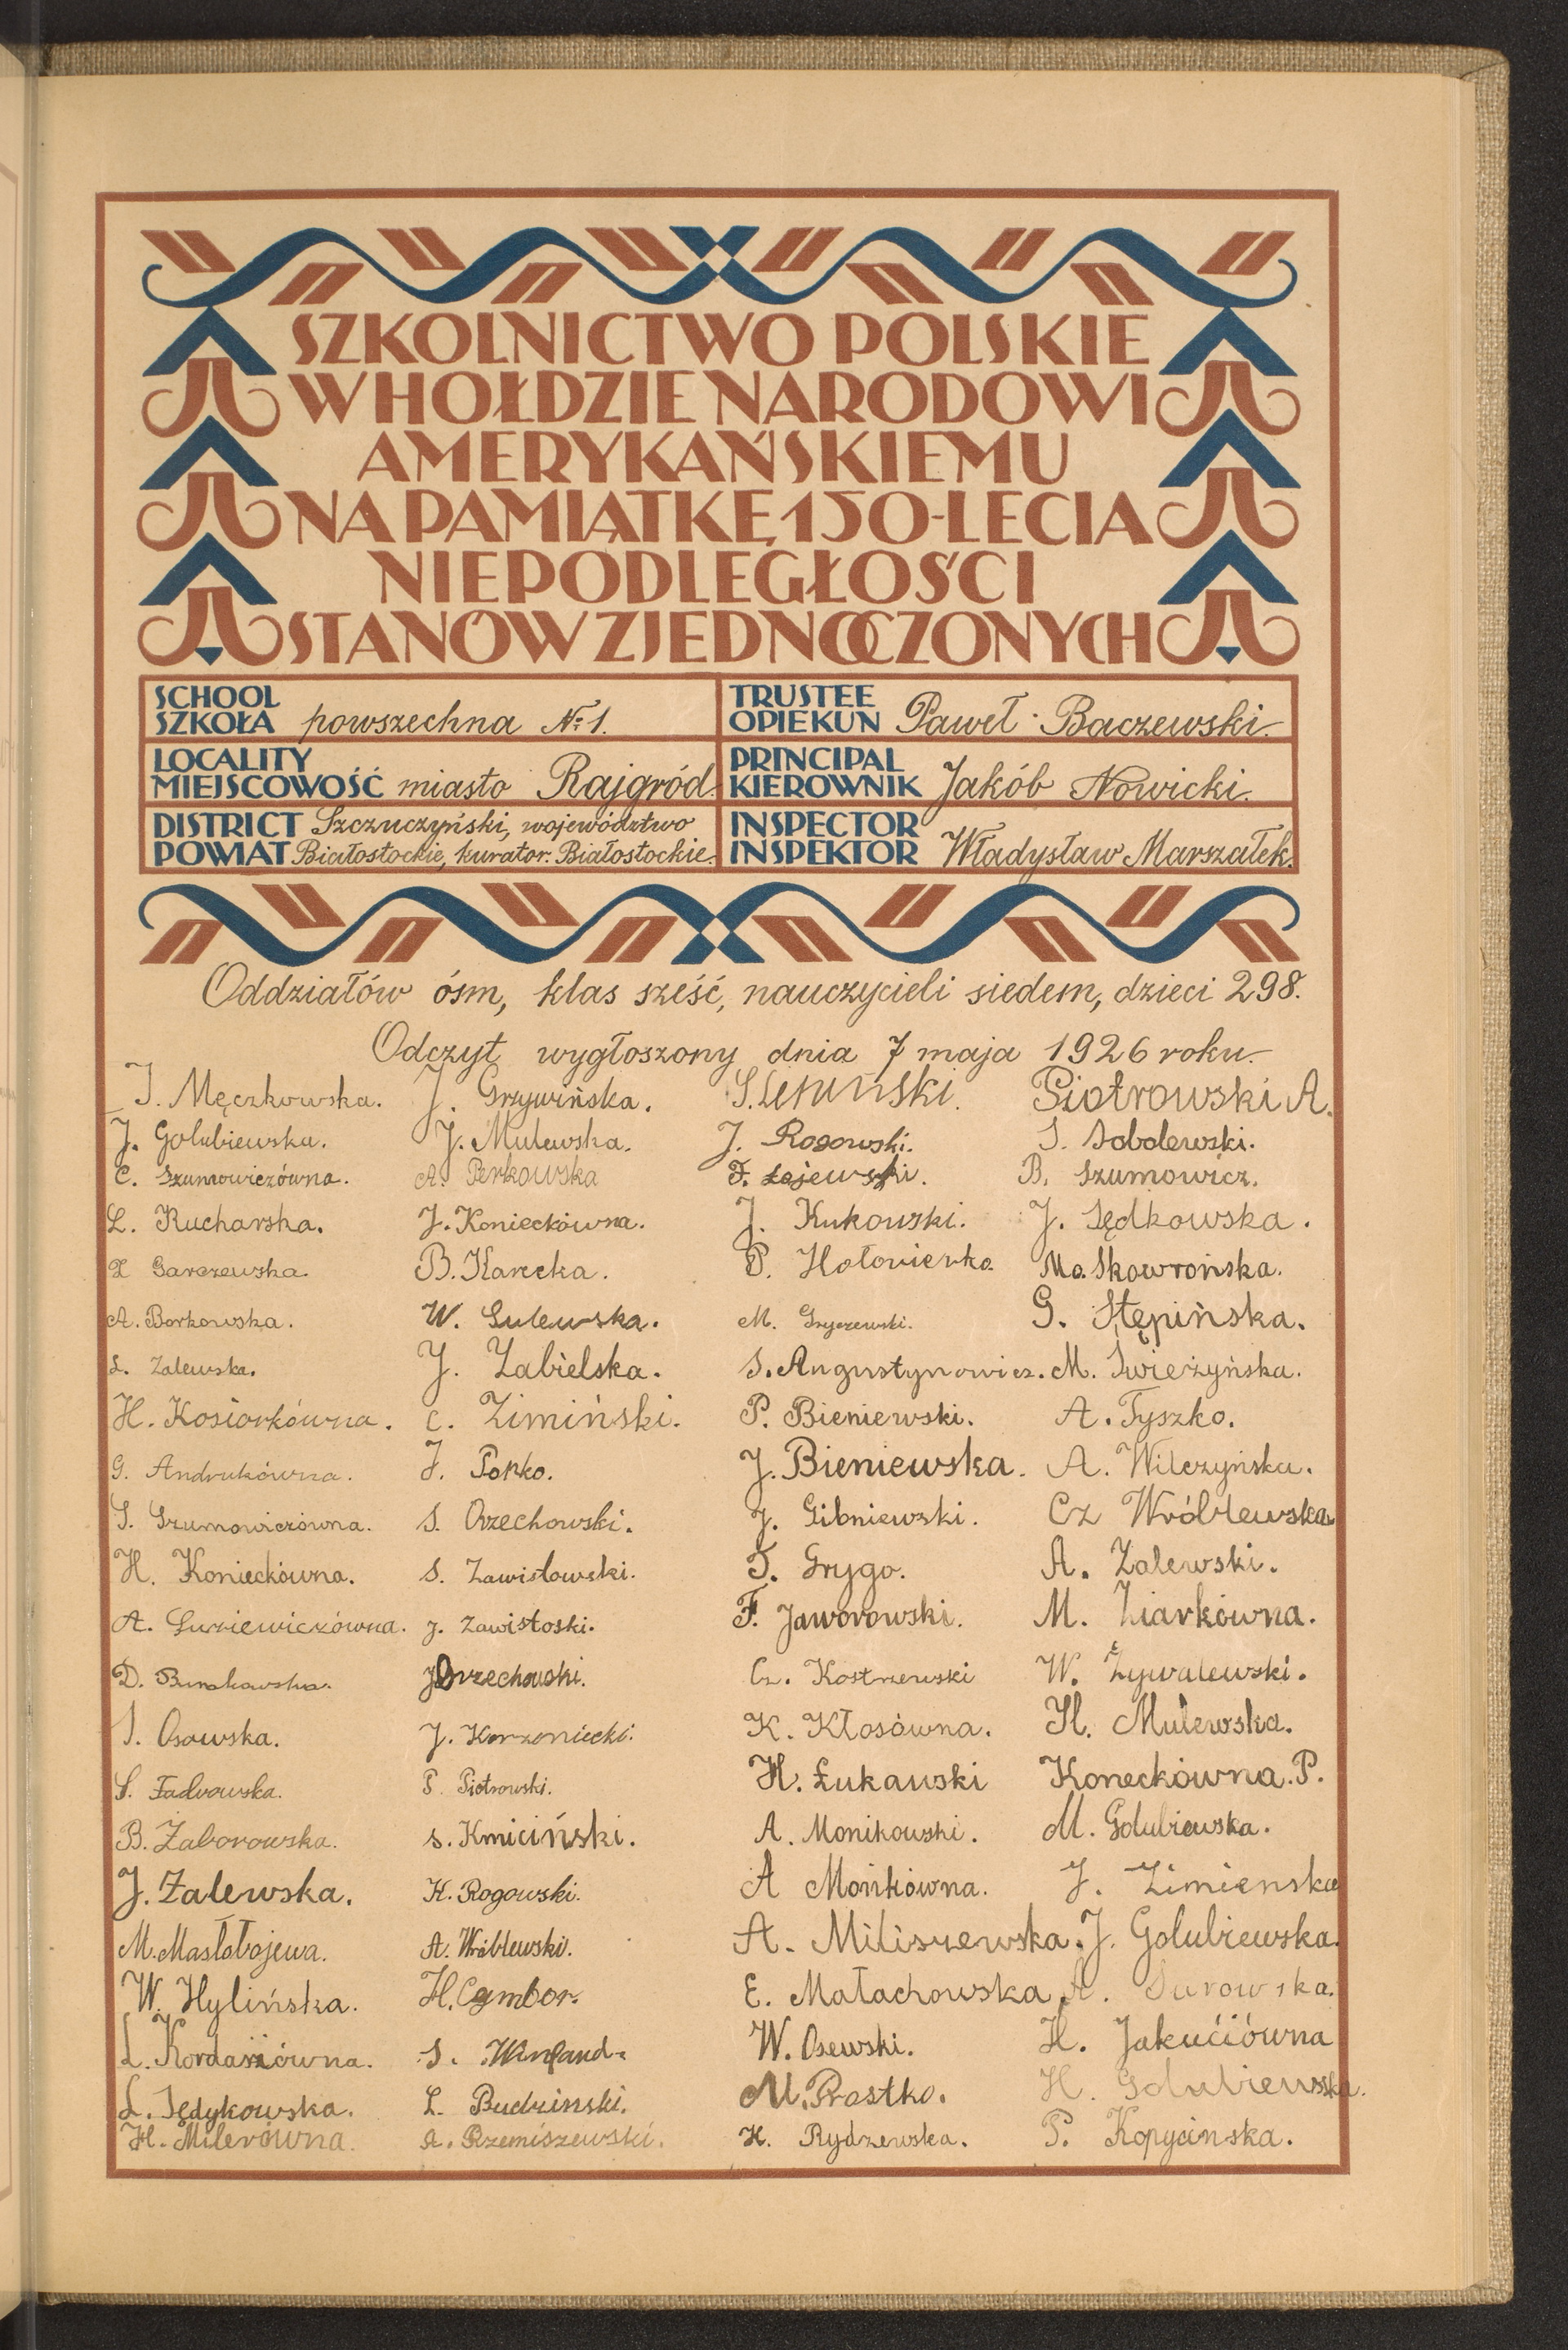 SZKOLNICTWO POLSKIE
W HOŁDZIE NARODOWI
AMERYKAŃSKIEMU
NA PAMIĄTKĘ 150-LECIA
NIEPODLEGŁOŚCI
STANÓW ZJEDNOCZONYCH
SCHOOL
SZKOŁA powszechna № 1.
TRUSTEE
OPIEKUN Paweł Baczewski.
LOCALITY
MIEJSCOWOŚĆ miasto Rajgród.
PRINCIPAL
KIEROWNIK Jakób Nowicki.
DISTRICT Szczuczyński, województwo
POWIAT Białostockie, kurator. Białostockie.
INSPECTOR
INSPEKTOR Władysław Marszałek.
Oddziałów ósm, klas sześć, nauczycieli siedem, dzieci 298.
Odczyt wygłoszony dnia 7 maja 1926 roku.
J. Męczkowska. J. Grzywińska. S. Piotrowski A.
J. Golubiewska. J. Mulewska. J. Rogowski. S. Sobolewski.
C. Szumowiczówna. A. Perkowska F. Łajewski. B. Szumowicz.
L. Kucharska. J. Konieckówna. J. Kukowski. J. Sędkowska.
Z Garczewska. B. Karecka. P. Hołowienko Ma. Skowrońska.
A. Borkowska. W. Gulewska. M. Gryczewski. G. Stępińska.
L. Zalewska. J. Zabielska. S. Augustynowicz. M. Świeżyńska.
H. Kosiorkówna. C. Zimiński. P. Bieniewski. A. Tyszko.
G. Andrukówna. J. Popko. J. Bieniewska. A. Wilczyńska.
S. Szumowiczówna. S. Orzechowski. J. Gibniewski. Cz Wróblewska
H. Konieckówna. S. Zawistowski. T. Grygo. A. Zalewski.
A. J. Zawistoski. F. Jaworowski. M. Ziarkówna.
D. J Orzechowski. Cz. Kostrzewski W. Żywalewski.
J. Osowska. J. Korzoniecki. K. Kłosówna. H. Mulewska.
S. Fadrowska. P. Piotrowski. H. Łukawski Koneckówna. P.
B. Zaborowska. S. Kmiciński. A. Monikowski. M. Golubiewska.
J. Zalewska. K. Rogowski. A Mońkówna. J. Zimienska
M. Masłobojewa. A. Wróblewski. A. Miliszewska. J. Golubiewska.
W. Hylińska. H. Cymbor. E. Małachowska A. Surowska.
L. Kordasiówna. S. W. Osewski. H. Jakućiówna
L. Jędykowska. L. Budzinski. M. Prostko. H. Golubiewska.
H. Milerówna. A. Rzemiszewski. H. Rydzewska. P. Kopycinska.